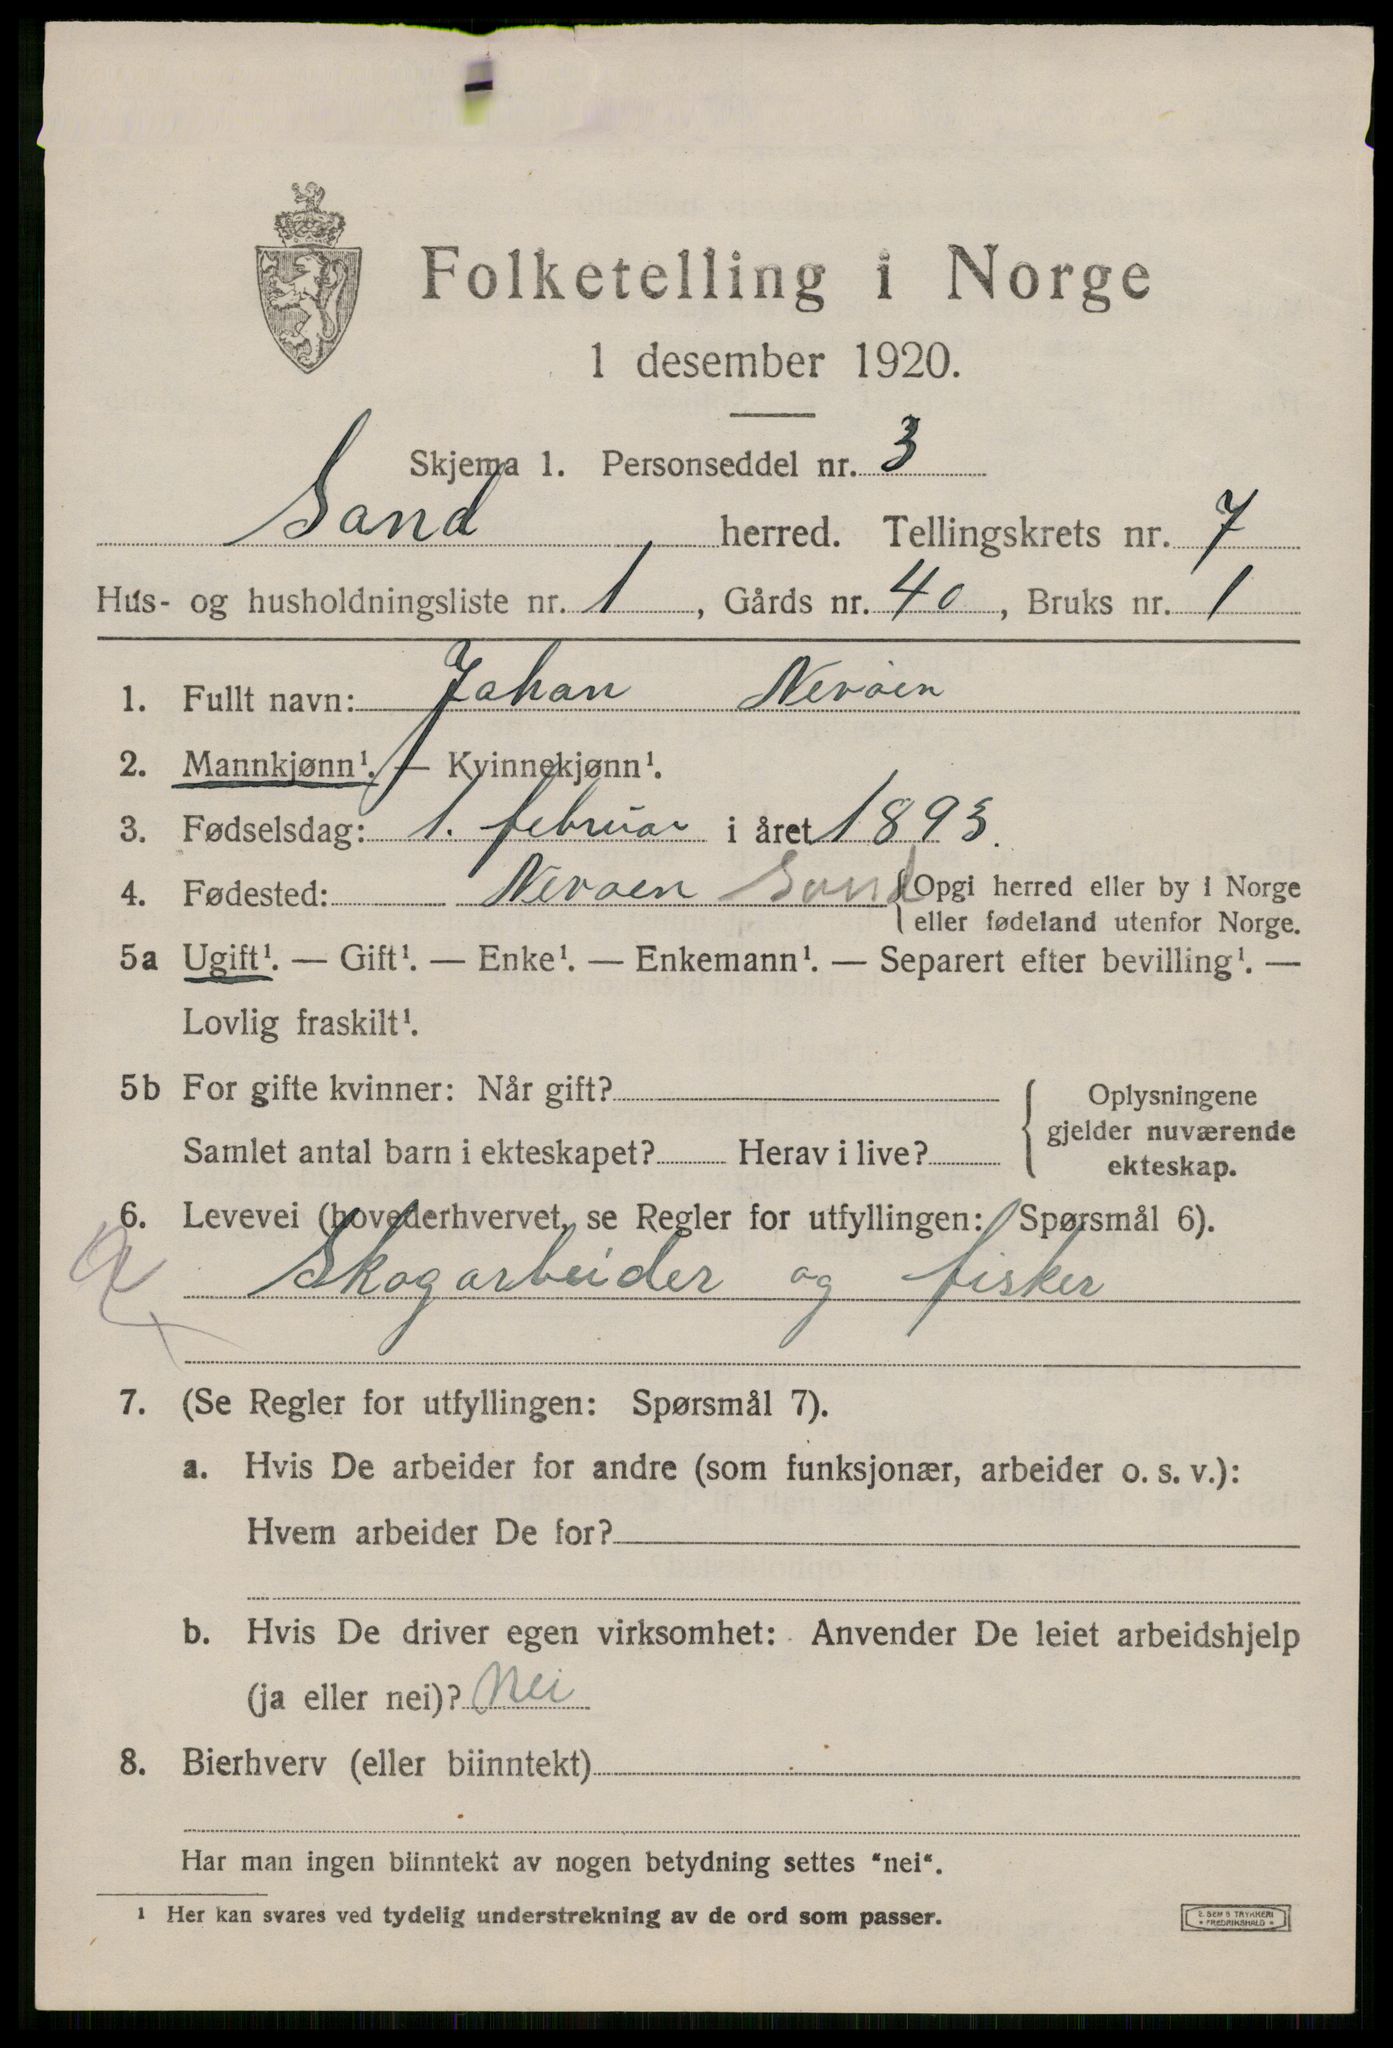 Folketelling i Norge
1 desember 1920.
Skjema 1. Personseddel nr. 3
Sand herred. Tellingskrets nr. 7
Hus- og husholdningsliste nr. 1, Gårds nr. 40, Bruks nr. 1
1. Fullt navn: Johan Nevøen
2. Mannkjønn¹. — Kvinnekjønn¹.
3. Fødselsdag: 1. februar i året 1893.
4. Fødested: Nevøen Sand { Opgi herred eller by i Norge
eller fødeland utenfor Norge.
5a Ugift¹. — Gift¹. — Enke¹. — Enkemann¹. — Separert efter bevilling¹. —
Lovlig fraskilt¹.
5b For gifte kvinner: Når gift? { Oplysningene
gjelder nuværende
Samlet antal barn i ekteskapet? Herav i live?
ekteskap.
6. Levevei (hovederhvervet, se Regler for utfyllingen: Spørsmål 6).
Skogarbeider og fisker
7. (Se Regler for utfyllingen: Spørsmål 7).
a. Hvis De arbeider for andre (som funksjonær, arbeider o. s. v.):
Hvem arbeider De for?
b. Hvis De driver egen virksomhet: Anvender De leiet arbeidshjelp
(ja eller nei)? Nei
8. Bierhverv (eller biinntekt)
Har man ingen biinntekt av nogen betydning settes “nei“.
¹ Her kan svares ved tydelig understrekning av de ord som passer.
E. SEM'S TRYKKERI
* FREDRIKSHALD *